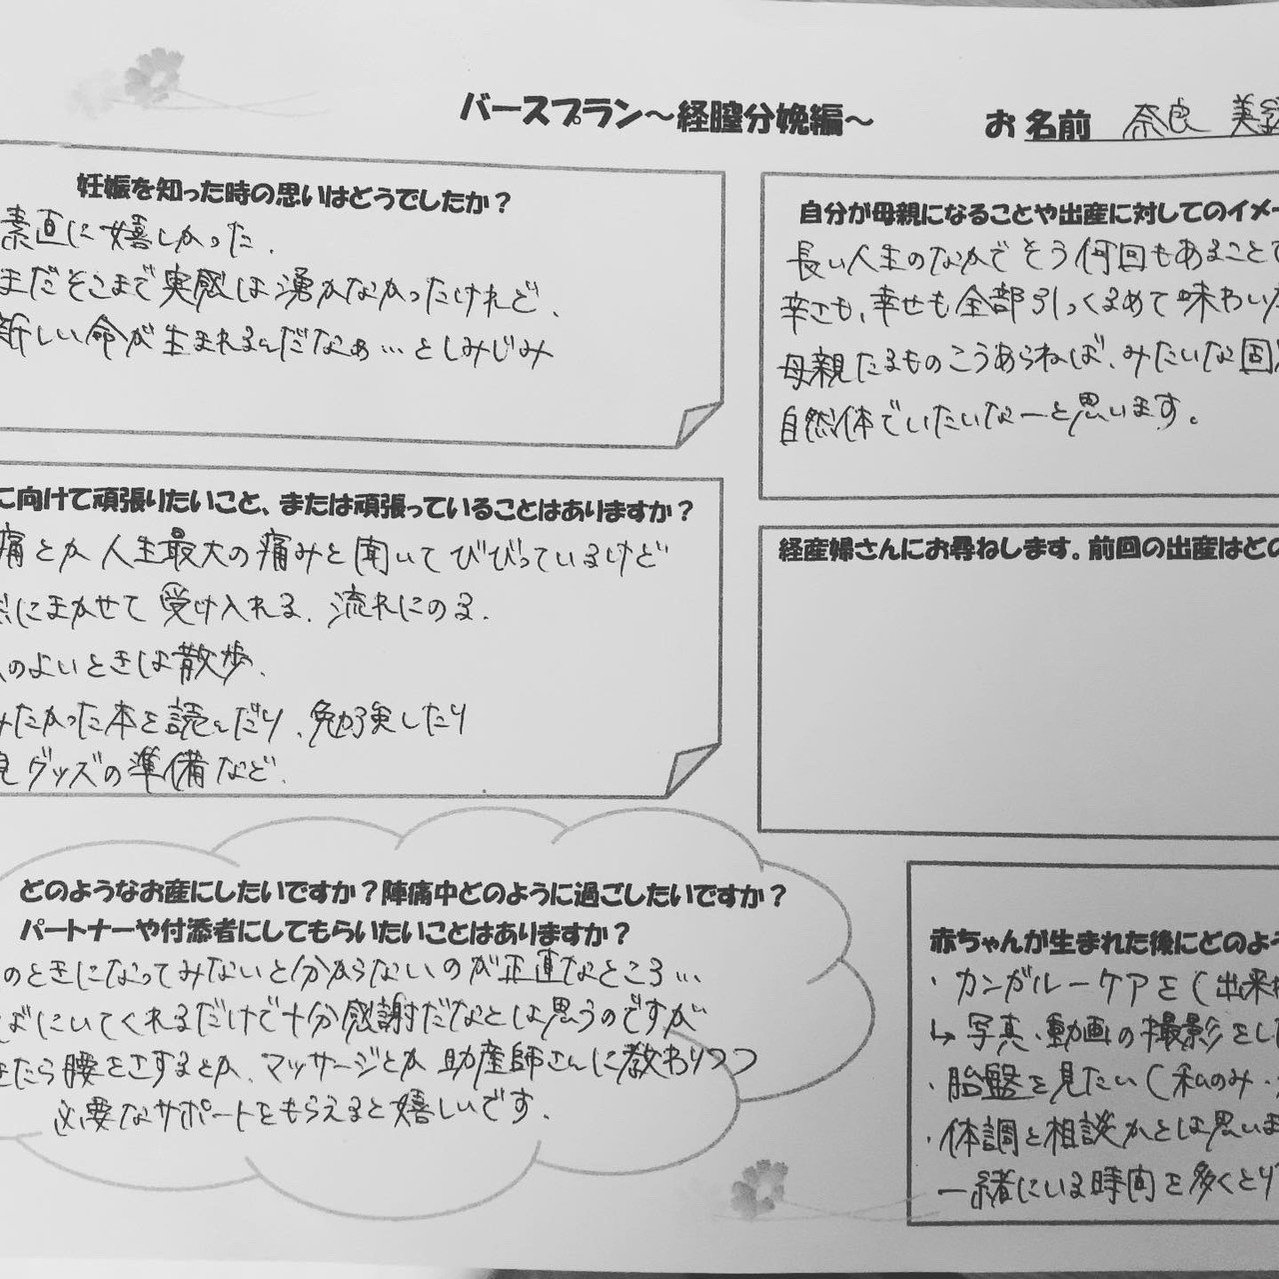 バースプラン～経膣分娩編～
お名前 奈良 美
妊娠を知った時の思いはどうでしたか？
素直に嬉しかった.
まだそこまで実感は湧かなかったけれど、
新しい命が生まれるんだなぁ…としみじみ
自分が母親になることや出産に対してのイメー
長い人生のなかでそう何回もあることで
辛さも、幸せも全部引っくるめて味わいた
母親たるものこうあらねば、みたいな固
自然体でいたいなーと思います。
に向けて頑張りたいこと、または頑張っていることはありますか？
痛とか人生最大の痛みと聞いてびびっているけど
にまかせて受け入れる.流れにのる.
のよいときは散歩、
みたかった本を読んだり、勉強したり
グッズの準備など.
経産婦さんにお尋ねします。前回の出産はどの
どのようなお産にしたいですか？陣痛中どのように過ごしたいですか？
パートナーや付添者にしてもらいたいことはありますか？
のときになってみないと分からないのが正直なところ…
ばにいてくれるだけで十分感謝だなとは思うのですが
きたら腰をさするとか、マッサージとか助産師さんに教わりつつ
必要なサポートをもらえると嬉しいです.
赤ちゃんが生まれた後にどのよう
・カンガルーケアを(出来
↳写真・動画の撮影をし
・胎盤を見たい(私のみ・
・体調と相談かとは思いま
一緒にいる時間を多くとり